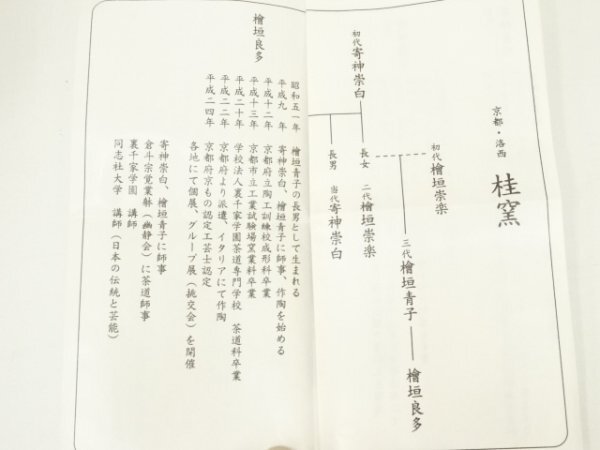 京都・洛西　桂窯
初代檜垣崇楽
三代檜垣青子　檜垣良多
初代寄神崇白
長女　二代檜垣崇楽
長男　当代寄神崇白
檜垣良多
昭和五一年　檜垣青子の長男として生まれる
平成九　年　寄神崇白、檜垣青子に師事、作陶を始める
平成十二年　京都府立陶工訓練校成形科卒業
平成十三年　京都市立工業試験場窯業科卒業
平成二十年　学校法人裏千家学園茶道専門学校　茶道科卒業
平成二二年　京都府より派遣、イタリアにて作陶
平成二四年　京都府京もの認定工芸士認定
各地にて個展、グループ展（挑交会）を開催
寄神崇白、檜垣青子に師事
倉斗宗覚業躰（幽静会）に茶道師事
裏千家学園　講師
同志社大学　講師（日本の伝統と芸能）